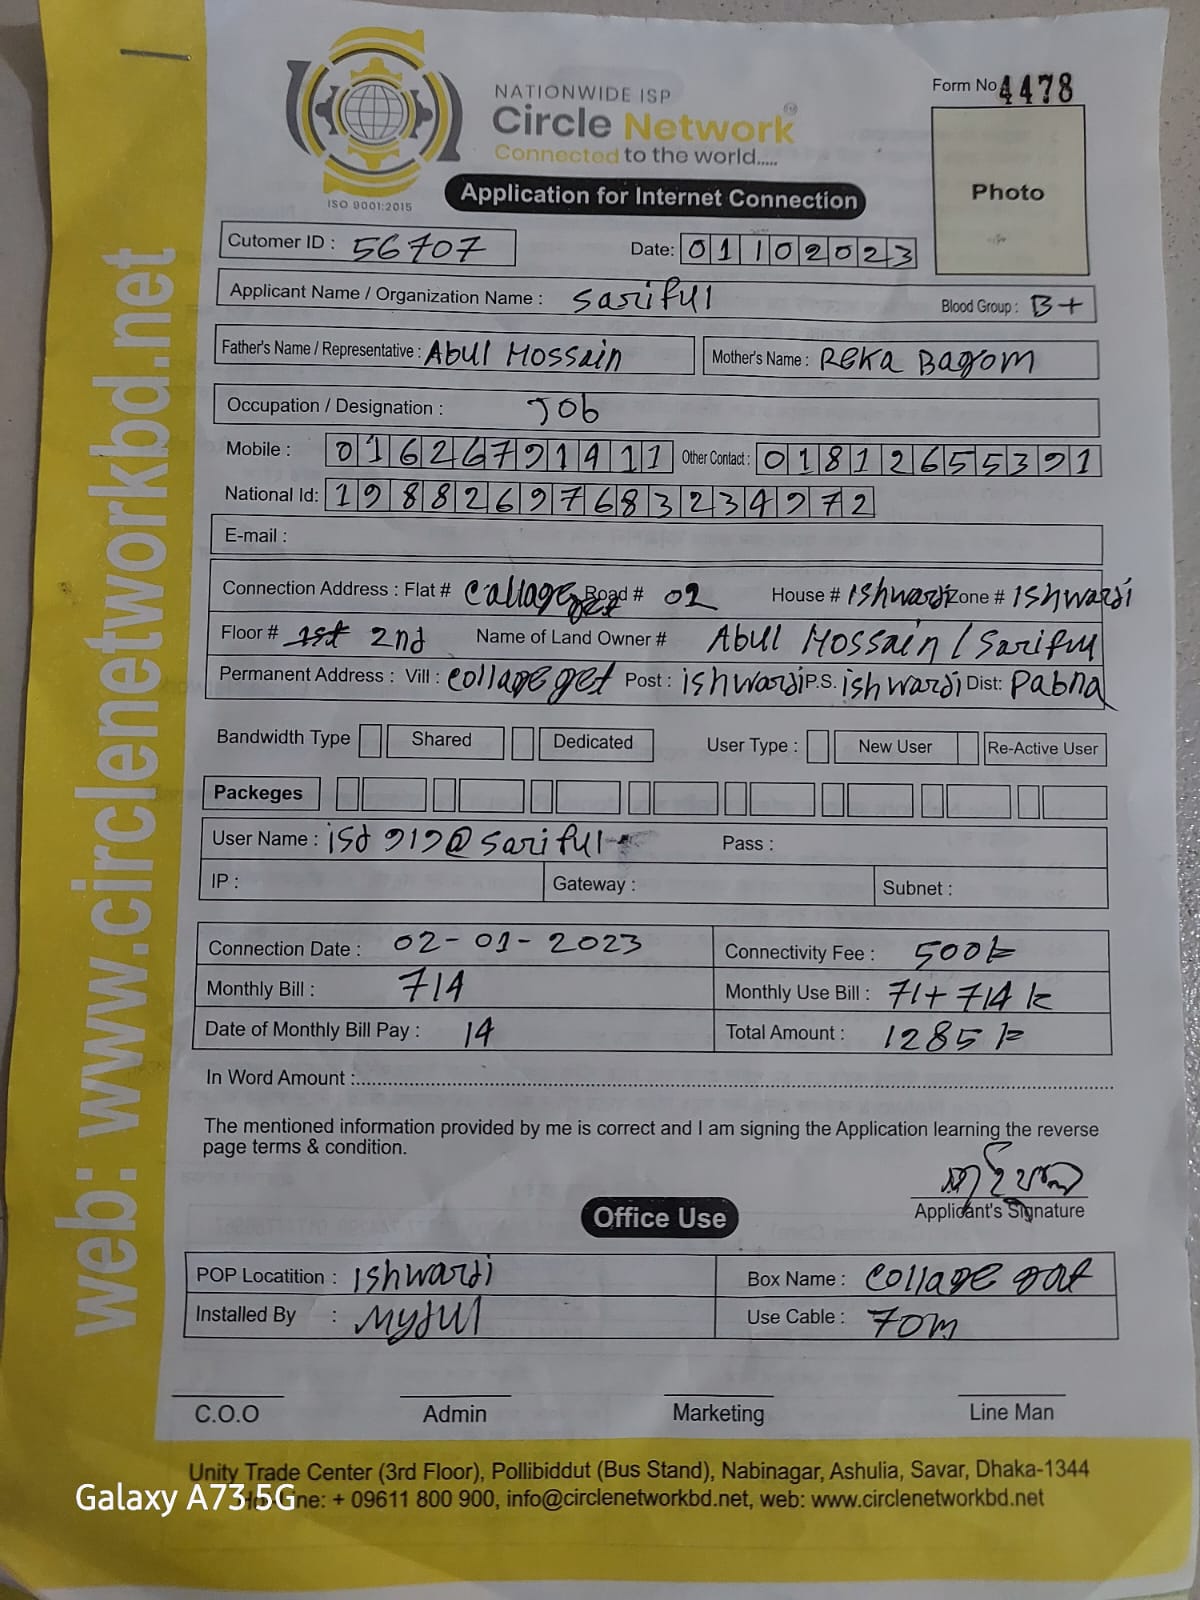 NATIONWIDE ISP
Circle Network
Connected to the world.....
ISO 9001:2015
Form No 4478
Photo
Application for Internet Connection
Cutomer ID : 56707 Date: 01102023
Applicant Name / Organization Name : Sariful Blood Group : B+
Father's Name / Representative : Abul Hossain Mother's Name : Reka Bagom
Occupation / Designation : Job
Mobile : 01626791411 Other Contact : 01812655391
National Id: 19882697683234972
E-mail :
Connection Address : Flat # Callage Road # 02 House # Ishwardi Zone # Ishwardi
Floor # 1st 2nd Name of Land Owner # Abul Hossain / Sariful
Permanent Address : Vill : Collage get Post : ishwardi P.S. ishwardi Dist: Pabna
Bandwidth Type Shared Dedicated User Type : New User Re-Active User
Packeges
User Name : isd 919@sariful Pass :
IP : Gateway : Subnet :
Connection Date : 02-01-2023 Connectivity Fee : 500k
Monthly Bill : 714 Monthly Use Bill : 71+714 k
Date of Monthly Bill Pay : 14 Total Amount : 1285 k
In Word Amount :
The mentioned information provided by me is correct and I am signing the Application learning the reverse
page terms & condition.
Applicant's Signature
Office Use
POP Locatition : Ishwardi Box Name : Collage gat
Installed By : Mydul Use Cable : 70m
C.O.O Admin Marketing Line Man
Unity Trade Center (3rd Floor), Pollibiddut (Bus Stand), Nabinagar, Ashulia, Savar, Dhaka-1344
ne: + 09611 800 900, info@circlenetworkbd.net, web: www.circlenetworkbd.net
Galaxy A73 5G
web: www.circlenetworkbd.net